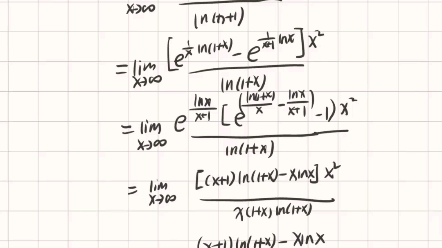 x→∞ ln(1+x)
= lim x→∞ [e^{1/x ln(1+x)} - e^{1/(x+1) lnx}] x² / ln(1+x)
= lim x→∞ e^{lnx/(x+1)} [e^{(ln(1+x)/x - lnx/(x+1))} - 1) x² / ln(1+x)
= lim x→∞ [(x+1) ln(1+x) - x lnx] x² / x(1+x) ln(1+x)
(x+1) ln(1+x) - x lnx